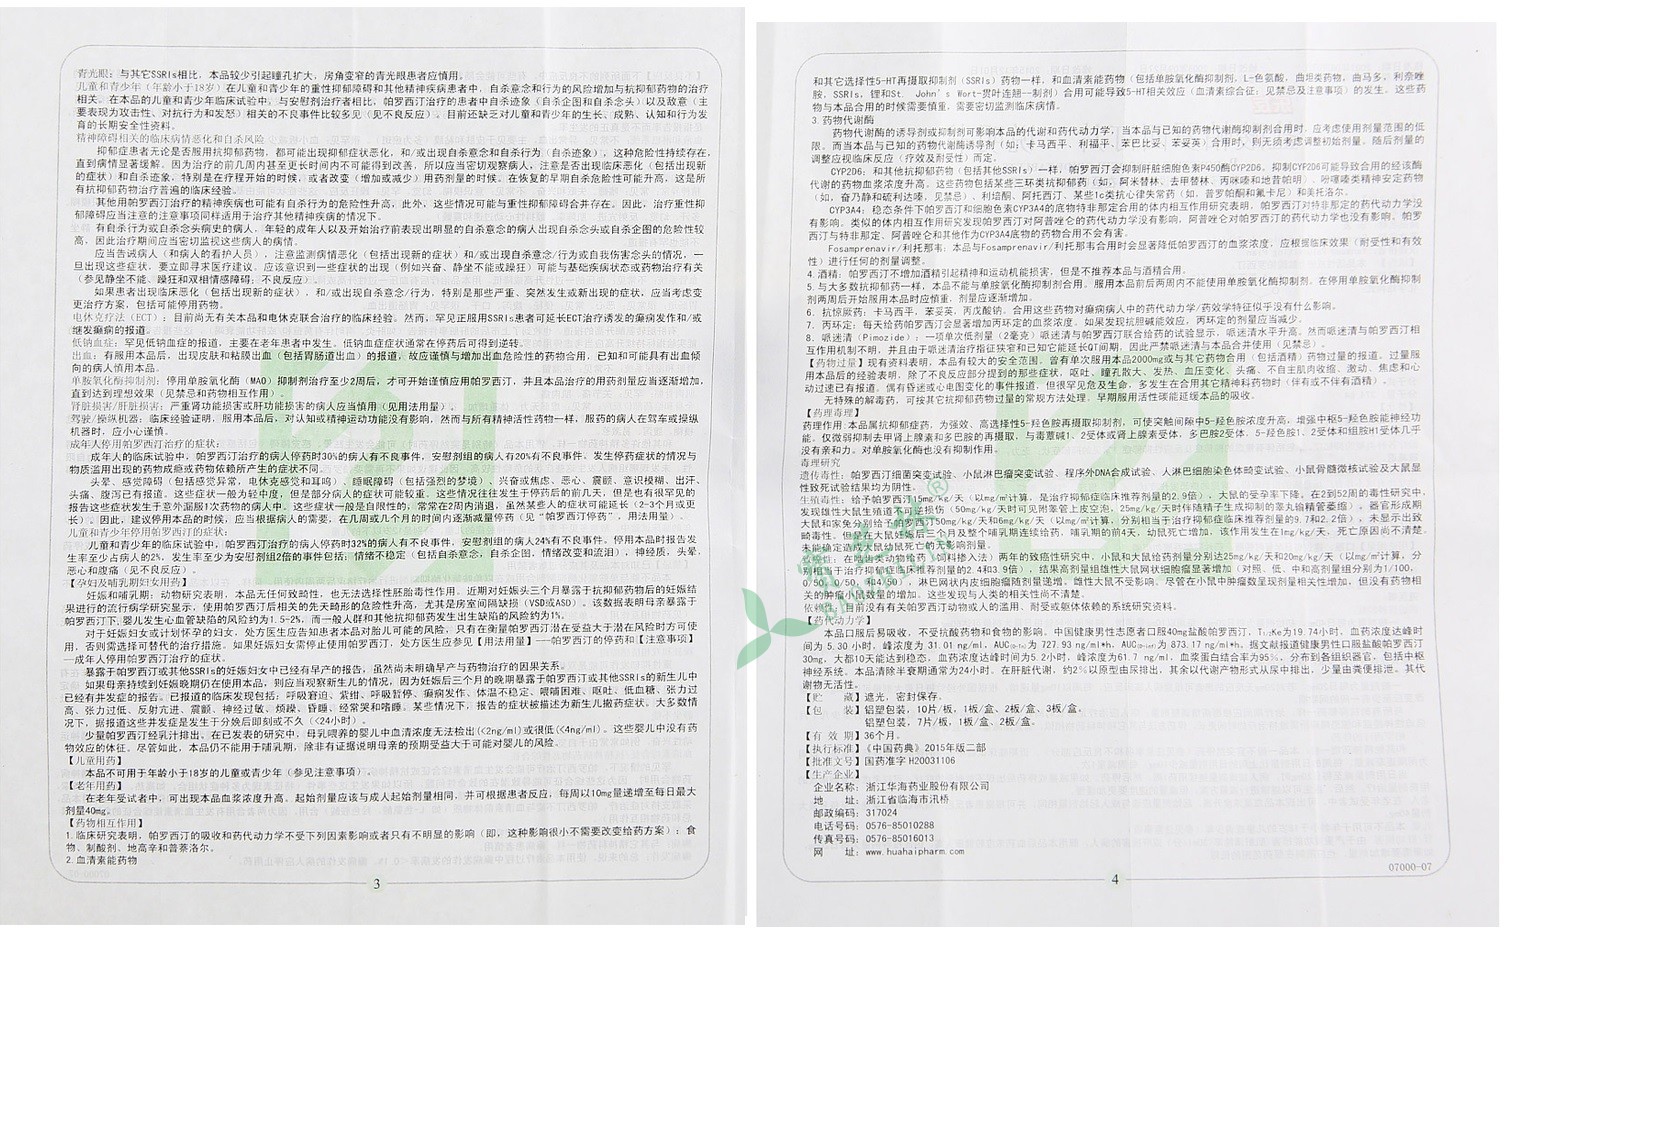 青光眼：与其它SSRIs相比，本品较少引起瞳孔扩大，房角变窄的青光眼患者应慎用。
儿童和青少年（年龄小于18岁）在儿童和青少年的重性抑郁障碍和其他精神疾病患者中，自杀意念和行为的风险增加与抗抑郁药物的治疗
相关。在本品的儿童和青少年临床试验中，与安慰剂治疗者相比，帕罗西汀治疗的患者中自杀迹象（自杀企图和自杀念头）以及敌意（主
要表现为攻击性、对抗行为和发怒）相关的不良事件比较多见（见不良反应）。目前还缺乏对儿童和青少年的生长、成熟、认知和行为发
育的长期安全性资料。
精神障碍相关的临床病情恶化和自杀风险
抑郁症患者无论是否服用抗抑郁药物，都可能出现抑郁症状恶化，和/或出现自杀意念和自杀行为（自杀迹象），这种危险性持续存在，
直到病情显著缓解。因为治疗的前几周内甚至更长时间内不可能得到改善，所以应当密切观察病人，注意是否出现临床恶化（包括出现新
的症状）和自杀迹象，特别是在疗程开始的时候，或者改变（增加或减少）用药剂量的时候。在恢复的早期自杀危险性可能升高，这是所
有抗抑郁药物治疗普遍的临床经验。
其他用帕罗西汀治疗的精神疾病也可能有自杀行为的危险性升高，此外，这些情况可能与重性抑郁障碍合并存在。因此，治疗重性抑
郁障碍应当注意的注意事项同样适用于治疗其他精神疾病的情况下。
有自杀行为或自杀念头病史的病人，年轻的成年人以及开始治疗前表现出明显的自杀意念的病人出现自杀念头或自杀企图的危险性较
高，因此治疗期间应当密切监视这些病人的病情。
应当告诫病人（和病人的看护人员），注意监测病情恶化（包括出现新的症状）和/或出现自杀意念/行为或自我伤害念头的情况，一
旦出现这些症状，要立即寻求医疗建议。应该意识到一些症状的出现（例如兴奋、静坐不能或躁狂）可能与基础疾病状态或药物治疗有关
（参见静坐不能、躁狂和双相情感障碍；不良反应）。
如果患者出现临床恶化（包括出现新的症状），和/或出现自杀意念/行为，特别是那些严重、突然发生或新出现的症状，应当考虑变
更治疗方案，包括可能停用药物。
电休克疗法（ECT）：目前尚无有关本品和电休克联合治疗的临床经验。然而，罕见正服用SSRIs患者可延长ECT治疗诱发的癫痫发作和/或
继发癫痫的报道。
低钠血症：罕见低钠血症的报道，主要在老年患者中发生。低钠血症症状通常在停药后可得到逆转。
出血：有服用本品后，出现皮肤和粘膜出血（包括胃肠道出血）的报道，故应谨慎与增加出血危险性的药物合用，已知和可能具有出血倾
向的病人慎用本品。
单胺氧化酶抑制剂：停用单胺氧化酶（MAO）抑制剂治疗至少2周后，才可开始谨慎应用帕罗西汀，并且本品治疗的用药剂量应当逐渐增加，
直到达到理想效果（见禁忌和药物相互作用）。
肾脏损害/肝脏损害：严重肾功能损害或肝功能损害的病人应当慎用（见用法用量）。
驾驶/操纵机器：临床经验证明，服用本品后，对认知或精神运动功能没有影响，然而与所有精神活性药物一样，服药的病人在驾车或操纵
机器时，应小心谨慎。
成年人停用帕罗西汀治疗的症状：
成年人的临床试验中，帕罗西汀治疗的病人停药时30%的病人有不良事件，安慰剂组的病人有20%有不良事件。发生停药症状的情况与
物质滥用出现的药物成瘾或药物依赖所产生的症状不同。
头晕、感觉障碍（包括感觉异常，电休克感觉和耳鸣）、睡眠障碍（包括强烈的梦境）、兴奋或焦虑、恶心、震颤、意识模糊、出汗、
头痛、腹泻已有报道。这些症状一般为轻中度，但是部分病人的症状可能较重。这些情况往往发生于停药后的前几天，但是也有很罕见的
报告这些症状发生于意外漏服1次药物的病人中。这些症状一般是自限性的，常常在2周内消退，虽然某些人的症状可能延长（2-3个月或更
长）。因此，建议停用本品的时候，应当根据病人的需要，在几周或几个月的时间内逐渐减量停药（见“帕罗西汀停药”，用法用量）。
儿童和青少年停用帕罗西汀的症状：
儿童和青少年的临床试验中，帕罗西汀治疗的病人停药时32%的病人有不良事件，安慰剂组的病人24%有不良事件。停用本品时报告发
生率至少占病人的2%，发生率至少为安慰剂组2倍的事件包括：情绪不稳定（包括自杀意念，自杀企图，情绪改变和流泪），神经质，头晕，
恶心和腹痛（见不良反应）。
【孕妇及哺乳期妇女用药】
妊娠和哺乳期：动物研究表明，本品无任何致畸性，也无选择性胚胎毒性作用。近期对妊娠头三个月暴露于抗抑郁药物后的妊娠结
果进行的流行病学研究显示，使用帕罗西汀后相关的先天畸形的危险性升高，尤其是房室间隔缺损（VSD或ASD）。该数据表明母亲暴露于
帕罗西汀下，婴儿发生心血管缺陷的风险约为1.5-2%，而一般人群和其他抗抑郁药发生出生缺陷的风险约为1%。
对于妊娠妇女或计划怀孕的妇女，处方医生应告知患者本品对胎儿可能的风险，只有在衡量帕罗西汀潜在受益大于潜在风险时方可使
用，否则需选择可替代的治疗措施。如果妊娠妇女需停止使用帕罗西汀，处方医生应参见【用法用量】—帕罗西汀的停药和【注意事项】
—成年人停用帕罗西汀治疗的症状。
暴露于帕罗西汀或其他SSRIs的妊娠妇女中已经有早产的报告，虽然尚未明确早产与药物治疗的因果关系。
如果母亲持续到妊娠晚期仍在使用本品，则应当观察新生儿的情况，因为妊娠后三个月的晚期暴露于帕罗西汀或其他SSRIs的新生儿中
已经有并发症的报告。已报道的临床发现包括：呼吸窘迫、紫绀、呼吸暂停、癫痫发作、体温不稳定、喂哺困难、呕吐、低血糖、张力过
高、张力过低、反射亢进、震颤、神经过敏、烦躁、昏睡、经常哭和嗜睡。某些情况下，报告的症状被描述为新生儿撤药症状。大多数情
况下，据报道这些并发症是发生于分娩后即刻或不久（<24小时）。
少量帕罗西汀经乳汁排出。在已发表的研究中，母乳喂养的婴儿中血清浓度无法检出(<2ng/ml)或很低(<4ng/ml)。这些婴儿中没有药
物效应的体征。尽管如此，本品仍不能用于哺乳期，除非有证据说明母亲的预期受益大于可能对婴儿的风险。
【儿童用药】
本品不可用于年龄小于18岁的儿童或青少年（参见注意事项）。
【老年用药】
在老年受试者中，可出现本品血浆浓度升高。起始剂量应该与成人起始剂量相同，并可根据患者反应，每周以10mg量递增至每日最大
剂量40mg。
【药物相互作用】
1.临床研究表明，帕罗西汀的吸收和药代动力学不受下列因素影响或者只有不明显的影响（即，这种影响很小不需要改变给药方案）：食
物、制酸剂、地高辛和普萘洛尔。
2.血清素能药物
3
和其它选择性5-HT再摄取抑制剂（SSRIs）药物一样，和血清素能药物（包括单胺氧化酶抑制剂，L-色氨酸，曲坦类药物，曲马多，利奈唑
胺，SSRIs，锂和St. John's Wort-贯叶连翘一制剂）合用可能导致5-HT相关效应（血清素综合征：见禁忌及注意事项）的发生。这些药
物与本品合用的时候需要慎重，需要密切监测临床病情。
3.药物代谢酶
药物代谢酶的诱导剂或抑制剂可影响本品的代谢和药代动力学。当本品与已知的药物代谢酶抑制剂合用时，应考虑使用剂量范围的低
限。而当本品与已知的药物代谢酶诱导剂（如：卡马西平、利福平、苯巴比妥、苯妥英）合用时，则无须考虑调整初始剂量。随后剂量的
调整应视临床反应（疗效及耐受性）而定。
CYP2D6：和其他抗抑郁药物（包括其他SSRIs）一样，帕罗西汀会抑制肝脏细胞色素P450酶CYP2D6。抑制CYP2D6可能导致合用的经该酶
代谢的药物血浆浓度升高。这些药物包括某些三环类抗抑郁药（如，阿米替林、去甲替林、丙咪嗪和地昔帕明）、吩噻嗪类精神安定药物
（如，奋乃静和硫利达嗪，见禁忌）、利培酮、阿托西汀、某些1c类抗心律失常药（如，普罗帕酮和氟卡尼）和美托洛尔。
CYP3A4：稳态条件下帕罗西汀和细胞色素CYP3A4的底物特非那定合用的体内相互作用研究表明，帕罗西汀对特非那定的药代动力学没
有影响。类似的体内相互作用研究发现帕罗西汀对阿普唑仑的药代动力学没有影响，阿普唑仑对帕罗西汀的药代动力学也没有影响。帕罗
西汀与特非那定、阿普唑仑和其他作为CYP3A4底物的药物合用不会有害。
Fosamprenavir/利托那韦：本品与Fosamprenavir/利托那韦合用时会显著降低帕罗西汀的血浆浓度，应根据临床效果（耐受性和有效
性）进行任何的剂量调整。
4.酒精：帕罗西汀不增加酒精引起精神和运动机能损害，但是不推荐本品与酒精合用。
5.与大多数抗抑郁药一样，本品不能与单胺氧化酶抑制剂合用。服用本品前后两周内不能使用单胺氧化酶抑制剂。在停用单胺氧化酶抑制
剂两周后开始服用本品时应慎重，剂量应逐渐增加。
6. 抗惊厥药：卡马西平，苯妥英，丙戊酸钠。合用这些药物对癫痫病人中的药代动力学/药效学特征似乎没有什么影响。
7. 丙环定：每天给药帕罗西汀会显著增加丙环定的血浆浓度。如果发现抗胆碱能效应，丙环定的剂量应当减少。
8. 哌迷清（Pimozide）：一项单次低剂量（2毫克）哌迷清与帕罗西汀联合给药的试验显示，哌迷清水平升高。然而哌迷清与帕罗西汀相
互作用机制不明，并且由于哌迷清治疗指征狭窄和已知它能延长QT间期，因此严禁哌迷清与本品合并使用（见禁忌）。
【药物过量】现有资料表明，本品有较大的安全范围。曾有单次服用本品2000mg或与其它药物合用（包括酒精）药物过量的报道。过量服
用本品后的经验表明，除了不良反应部分提到的那些症状，呕吐、瞳孔散大、发热、血压变化、头痛、不自主肌肉收缩、激动、焦虑和心
动过速已有报道。偶有昏迷或心电图变化的事件报道，但很罕见危及生命，多发生在合用其它精神科药物时（伴有或不伴有酒精）。
无特殊的解毒药，可按其它抗抑郁药物过量的常规方法处理，早期服用活性碳能延缓本品的吸收。
【药理毒理】
药理作用:本品属抗抑郁症药，为强效、高选择性5-羟色胺再摄取抑制剂，可使突触间隙中5-羟色胺浓度升高，增强中枢5-羟色胺能神经功
能。仅微弱抑制去甲肾上腺素和多巴胺的再摄取，与毒蕈碱1、2受体或肾上腺素受体、多巴胺2受体、5-羟色胺1、2受体和组胺H1受体几乎
没有亲和力。对单胺氧化酶也没有抑制作用。
毒理研究
遗传毒性：帕罗西汀细菌突变试验、小鼠淋巴瘤突变试验、程序外DNA合成试验、人淋巴细胞染色体畸变试验、小鼠骨髓微核试验及大鼠显
性致死试验结果均为阴性。
生殖毒性：给予帕罗西汀15mg/kg/天（以mg/m²计算，是治疗抑郁症临床推荐剂量的2.9倍），大鼠的受孕率下降。在2到52周的毒性研究中，
发现雄性大鼠生殖道不可逆损伤（50mg/kg/天时可见附睾管上皮空泡，25mg/kg/天时伴随精子生成抑制的睾丸输精管萎缩）。器官形成期
大鼠和家兔分别给予帕罗西汀50mg/kg/天和6mg/kg/天（以mg/m²计算，分别相当于治疗抑郁症临床推荐剂量的9.7和2.2倍），未显示出致
畸毒性。但是在大鼠妊娠后三个月及整个哺乳期连续给药，哺乳期的前4天，幼鼠死亡增加，该作用发生在1mg/kg/天，死亡原因尚不清楚。
未能确定造成大鼠幼鼠死亡的无影响剂量。
致癌性：在啮齿类动物给药（饲料掺入法）两年的致癌性研究中，小鼠和大鼠给药剂量分别达25mg/kg/天和20mg/kg/天（以mg/m²计算，分
别相当于治疗抑郁症临床推荐剂量的2.4和3.9倍），结果高剂量组雄性大鼠网状细胞瘤显著增加（对照、低、中和高剂量组分别为1/100、
0/50、0/50、和4/50），淋巴网状内皮细胞瘤随剂量递增。雌性大鼠不受影响。尽管在小鼠中肿瘤数呈现剂量相关性增加，但没有药物相
关的肿瘤小鼠数量的增加。这些发现与人类的相关性尚不清楚。
依赖性：目前没有有关帕罗西汀动物或人的滥用、耐受或躯体依赖的系统研究资料。
【药代动力学】
本品口服后易吸收，不受抗酸药物和食物的影响。中国健康男性志愿者口服40mg盐酸帕罗西汀，T₁/₂Ke为19.74小时，血药浓度达峰时
间为 5.30 小时，峰浓度为 31.01 ng/ml，AUC(0-Tn)为 727.93 ng/ml*h，AUC(0-inf)为 873.17 ng/ml*h。据文献报道健康男性口服盐酸帕罗西汀
30mg，大都10天能达到稳态，血药浓度达峰时间为5.2小时，峰浓度为61.7 ng/ml，血浆蛋白结合率为95%，分布到各组织器官，包括中枢
神经系统。本品清除半衰期通常为24小时。在肝脏代谢，约2%以原型由尿排出，其余以代谢产物形式从尿中排出，少量由粪便排泄。其代
谢物无活性。
【贮　　藏】遮光，密封保存。
【包　　装】铝塑包装，10片/板，1板/盒、2板/盒、3板/盒。
铝塑包装，7片/板，1板/盒、2板/盒。
【有 效 期】36个月。
【执行标准】《中国药典》2015年版二部
【批准文号】国药准字 H20031106
【生产企业】
企业名称：浙江华海药业股份有限公司
地　　址：浙江省临海市汛桥
邮政编码：317024
电话号码：0576-85010288
传真号码：0576-85016013
网　　址：www.huahaipharm.com
07000-07
4